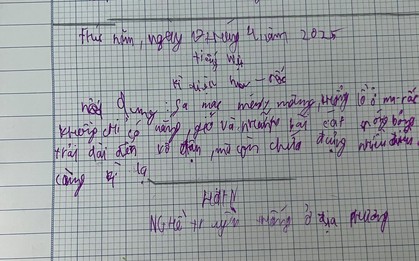 thứ năm, ngày 17 tháng 4 năm 2025
tiếng việt
kì diệu ma-rốc
Nội dung: Sa mạc mênh mông ở ma-rốc
không chỉ có nắng, gió và những bãi cát mông
trải dài đến vô tận, mà còn chứa đựng nhiều điều
kì lạ
HĐTN
NGHề truyền thống ở địa phương